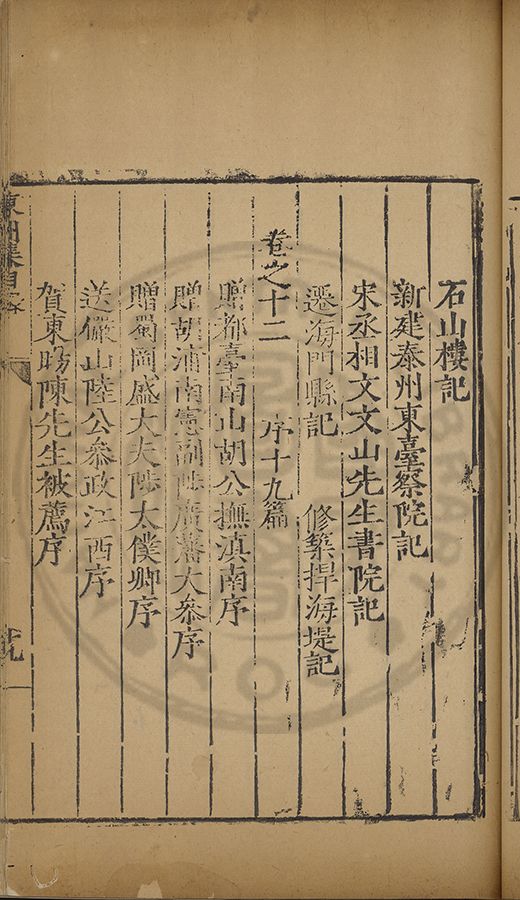 石山樓記
新建泰州東臺察院記
宋丞相文文山先生書院記
遷海門縣記　修築捍海堤記
卷之十二　序十九篇
贈都臺南山胡公撫滇南序
贈胡浦南憲副陟廣藩大參序
贈蜀岡盛大夫陟太僕卿序
送儼山陸公叅政江西序
賀東暘陳先生被薦序
東州集目录